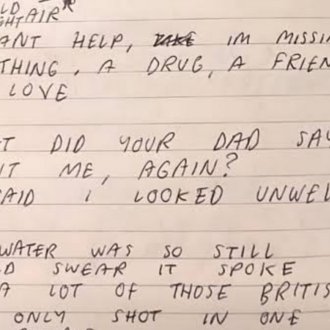 LD
GHT AIR*
ANT HELP, IM MISSI
THING, A DRUG, A FRIEN
LOVE
T DID YOUR DAD SAY
T ME, AGAIN?
AID I LOOKED UNWEL
WATER WAS SO STILL
D SWEAR IT SPOKE
A LOT OF THOSE BRITIS
ONLY SHOT IN ONE